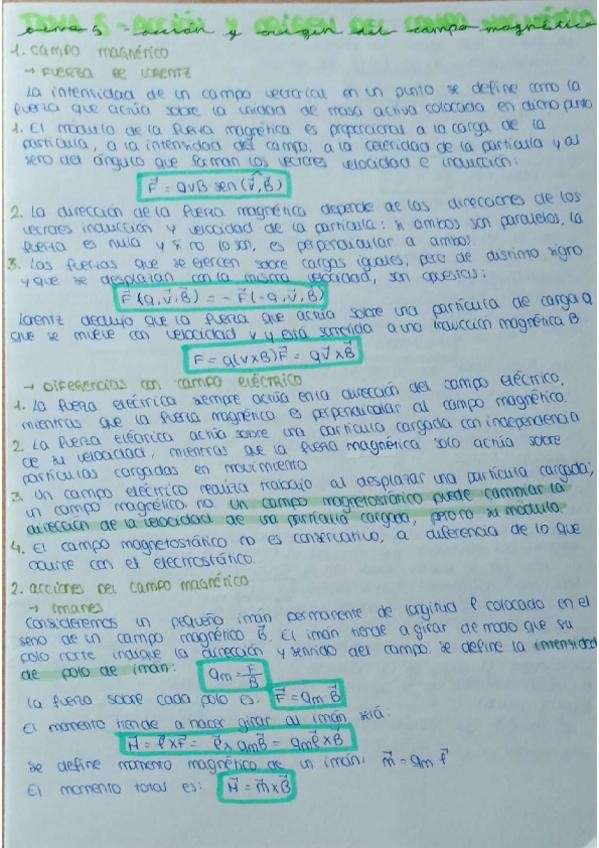 TEMA 5 - ACCIÓN Y ORIGEN DEL CAMPO MAGNÉTICO
tema 5 - acción y origen del campo magnético
1. CAMPO MAGNÉTICO
→ FUERZA DE LORENTZ
La intensidad de un campo vectorial en un punto se define como la
fuerza que actúa sobre la unidad de masa activa colocada en dicho punto
1. El módulo de la fuerza magnética es proporcional a la carga de la
partícula, a la intensidad del campo, a la celeridad de la partícula y al
seno del ángulo que forman los vectores velocidad e inducción:
F⃗ = qvB sen(v⃗,B⃗)
2. La dirección de la fuerza magnética depende de las direcciones de los
vectores inducción y velocidad de la partícula: si ambos son paralelos, la
fuerza es nula y si no lo son, es perpendicular a ambos
3. Las fuerzas que se ejercen sobre cargas iguales, pero de distinto signo
y que se desplazan con la misma velocidad, son opuestas:
F⃗(q,v⃗,B⃗) = -F⃗(-q,v⃗,B⃗)
Lorentz dedujo que la fuerza que actúa sobre una partícula de carga q
que se mueve con velocidad v y está sometida a una inducción magnética B
F = q(v×B)F⃗ = qv⃗×B⃗
→ DIFERENCIAS CON CAMPO ELÉCTRICO
1. La fuerza eléctrica siempre actúa en la dirección del campo eléctrico,
mientras que la fuerza magnético es perpendicular al campo magnético.
2. La fuerza eléctrica actúa sobre una partícula cargada con independencia
de su velocidad, mientras que la fuerza magnética solo actúa sobre
partículas cargadas en movimiento
3. Un campo eléctrico realiza trabajo al desplazar una partícula cargada;
un campo magnético no. Un campo magnetostático puede cambiar la
dirección de la velocidad de una partícula cargada, pero no su módulo.
4. El campo magnetostático no es conservativo, a diferencia de lo que
ocurre con el electrostático.
2. ACCIONES DEL CAMPO MAGNÉTICO
→ Imanes
Consideremos un pequeño imán permanente de longitud ℓ colocado en el
seno de un campo magnético B⃗. El imán tiende a girar de modo que su
polo norte indique la dirección y sentido del campo. Se define la intensidad
de polo de imán: qm = F/B
La fuerza sobre cada polo es: F⃗ = qm·B⃗
El momento tiende a hacer girar al imán será:
M⃗ = ℓ⃗×F⃗ = ℓ⃗×qmB⃗ = qmℓ⃗×B⃗
Se define momento magnético de un imán: m⃗ = qm ℓ⃗
El momento total es: M⃗ = m⃗×B⃗